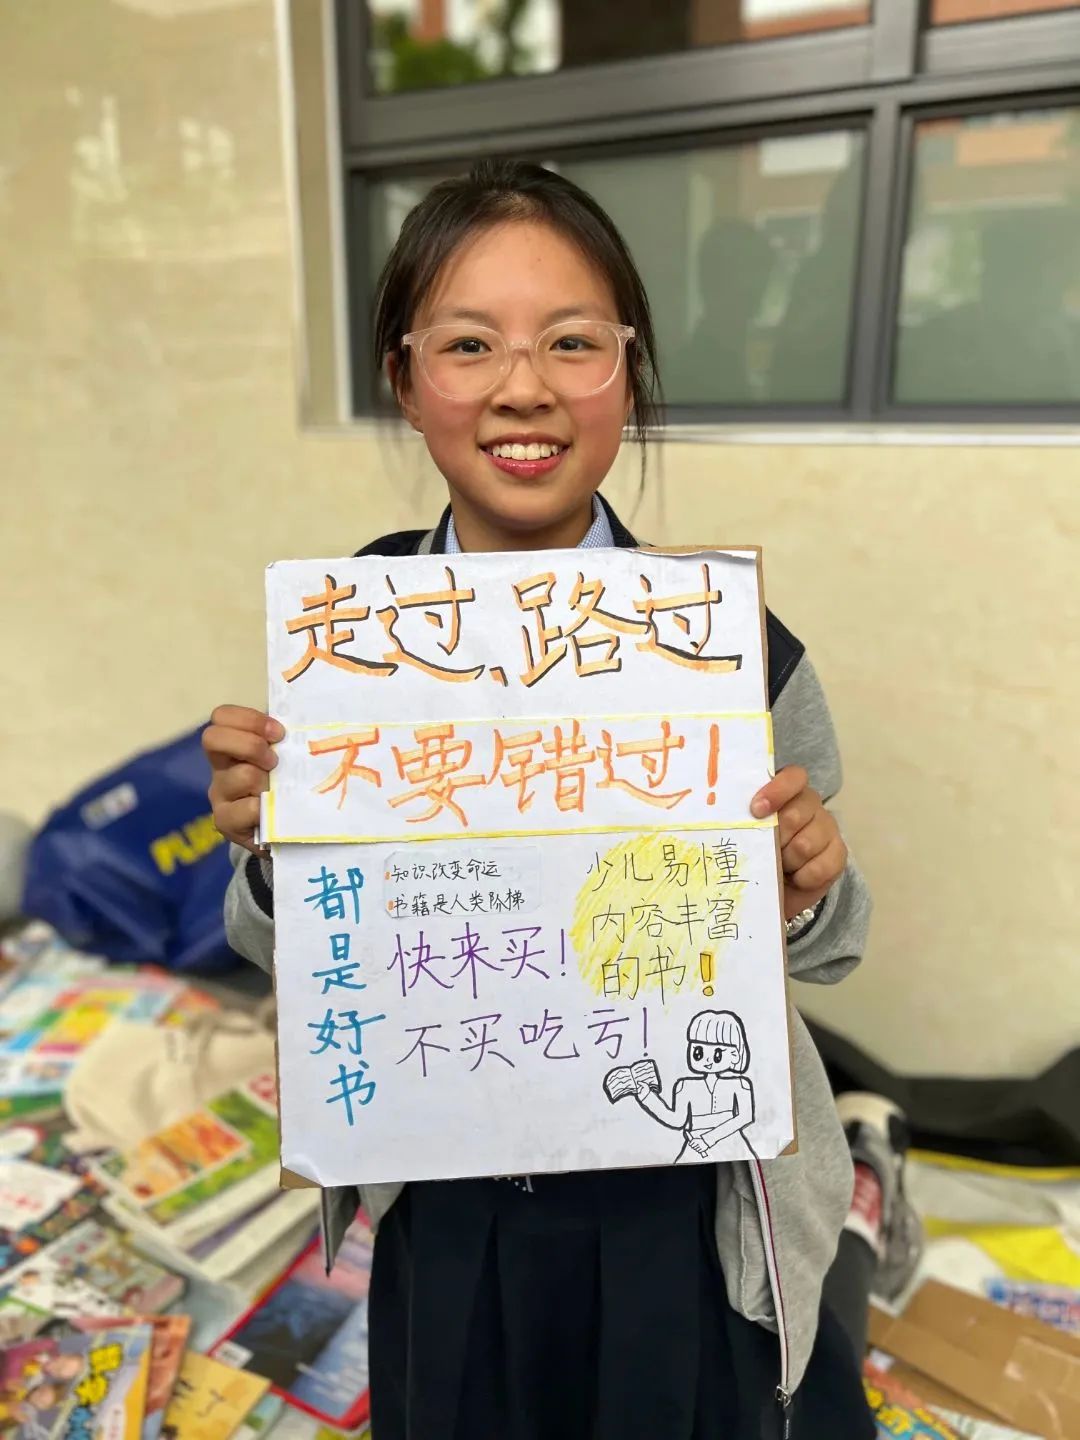 走过、路过
不要错过！
都是好书
知识改变命运
书籍是人类阶梯
快来买！
不买吃亏！
少儿易懂、
内容丰富、
的书！